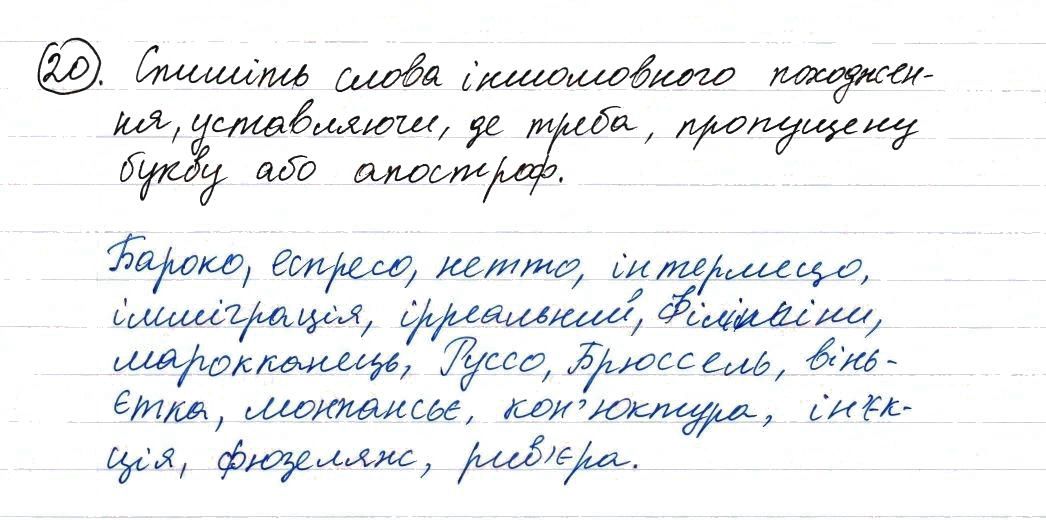 20. Спишіть слова іншомовного походжен-
ня, уставляючи, де треба, пропущену
букву або апостроф.
Бароко, еспресо, нетто, інтермецо,
імміграція, ірреальний,
марокканець, Руссо, Брюссель, вінь-
єтка, монпансьє, кон'юктура, ін'єк-
ція, фюзеляж, рив'єра.